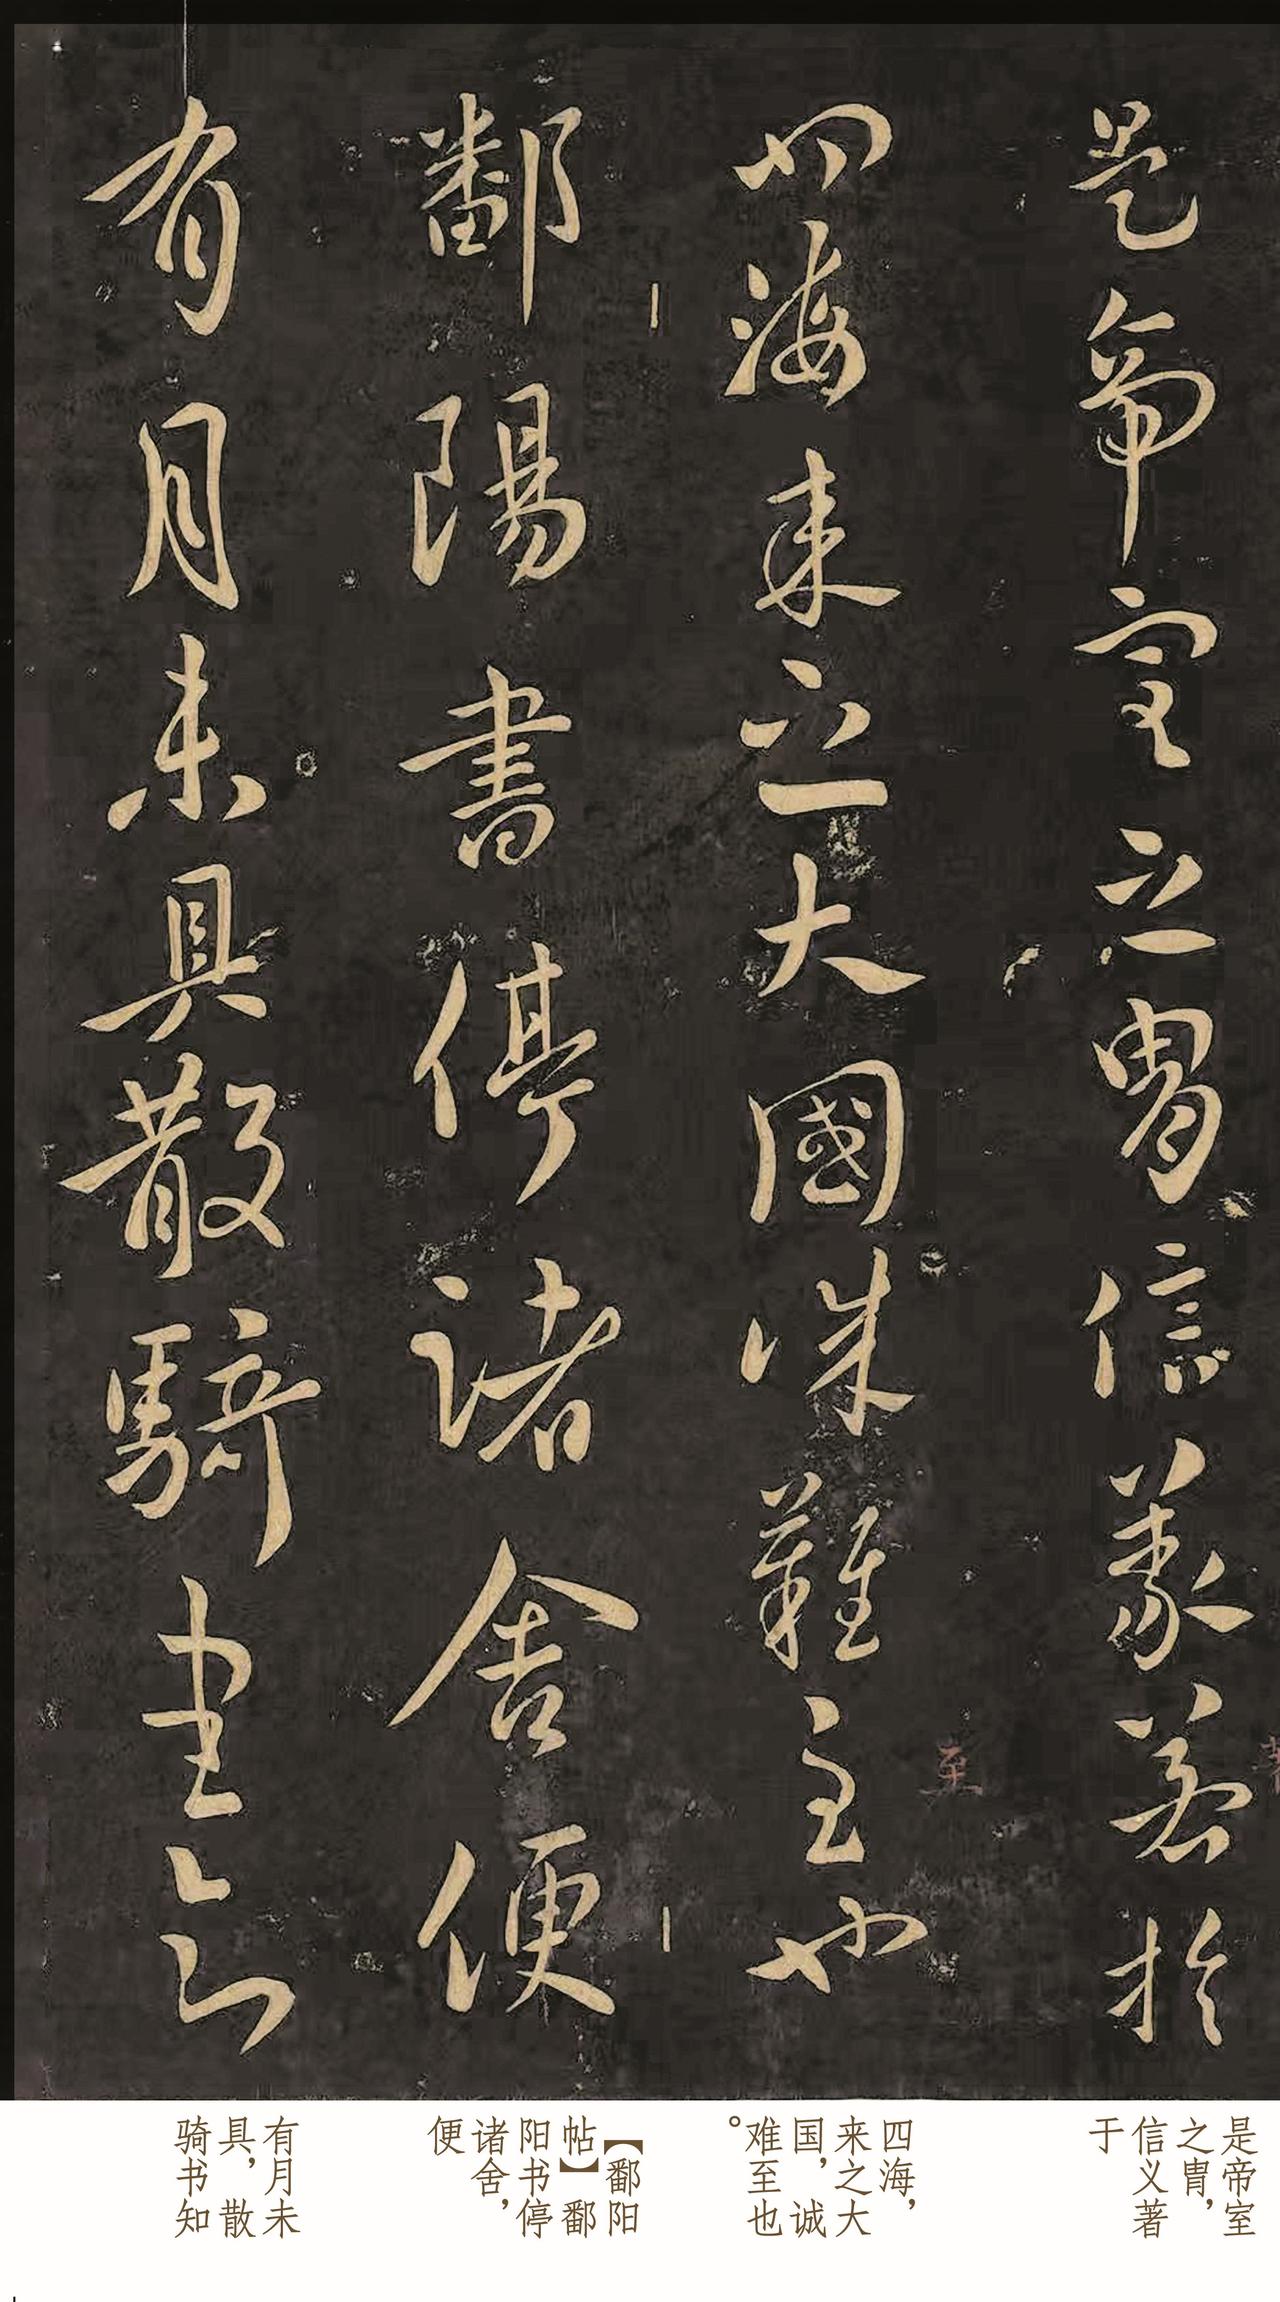 是帝室之胄信義著於
四海来之大國誠難至也
至
鄱陽書停諸舍便
有月未具散騎書知
是帝室
之胄，
信义著
于
四海，
来之大
国，诚
难至也
。
【鄱阳
帖】鄱
阳书停
诸舍，
便
有月未
具，散
骑书知